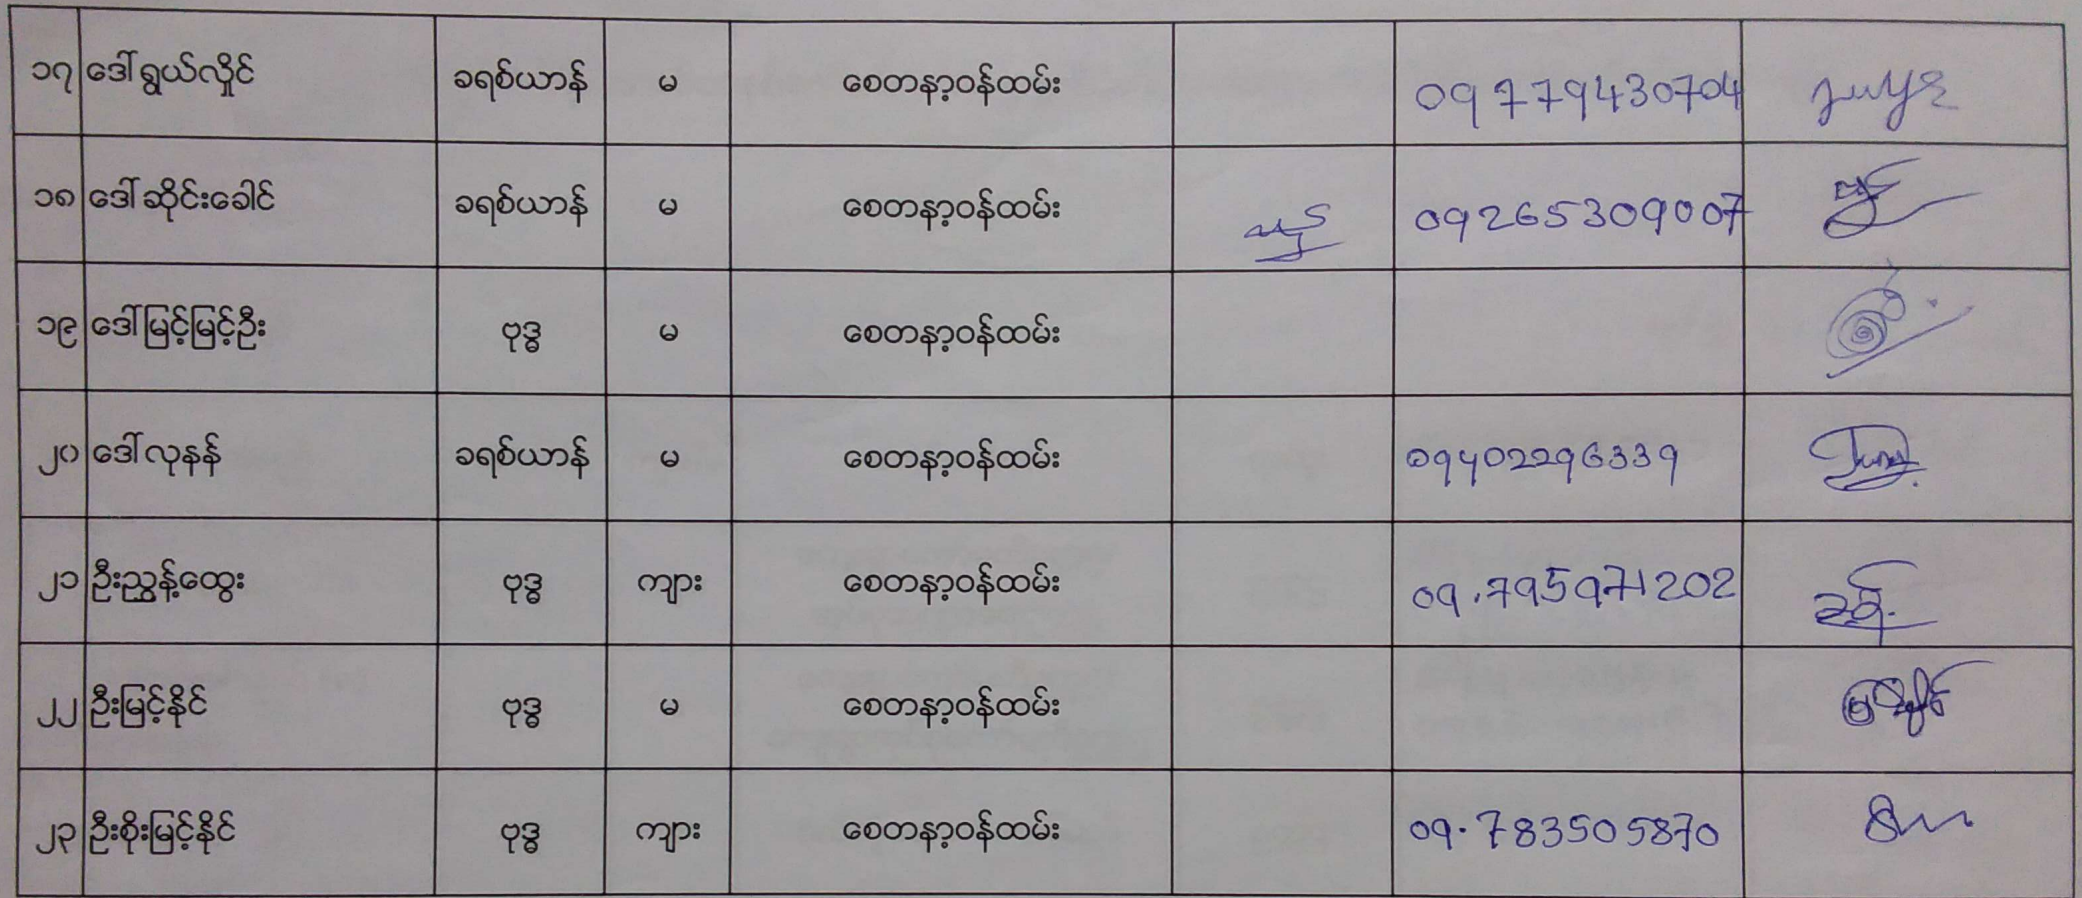 ၁၇ ဒေါ်ရွယ်လှိုင် ခရစ်ယာန် မ စေတနာ့ဝန်ထမ်း 09779430704
၁၈ ဒေါ်ဆိုင်းခေါင် ခရစ်ယာန် မ စေတနာ့ဝန်ထမ်း 09265309007
၁၉ ဒေါ်မြင့်မြင့်ဦး ဗုဒ္ဓ မ စေတနာ့ဝန်ထမ်း
၂၀ ဒေါ်လုနန် ခရစ်ယာန် မ စေတနာ့ဝန်ထမ်း 09402296339
၂၁ ဦးညွန့်ထွေး ဗုဒ္ဓ ကျား စေတနာ့ဝန်ထမ်း 09.795971202
၂၂ ဦးမြင့်နိုင် ဗုဒ္ဓ မ စေတနာ့ဝန်ထမ်း
၂၃ ဦးစိုးမြင့်နိုင် ဗုဒ္ဓ ကျား စေတနာ့ဝန်ထမ်း 09.783505870